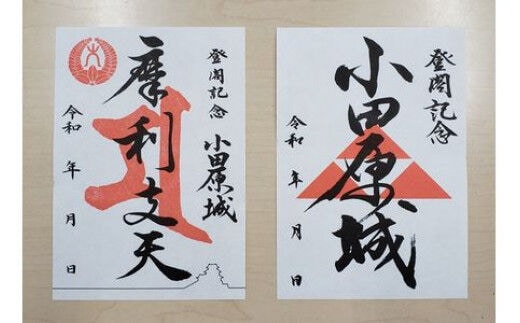 登閣記念
小田原城
摩利支天
令和 年 月 日
登閣記念
小田原城
令和 年 月 日